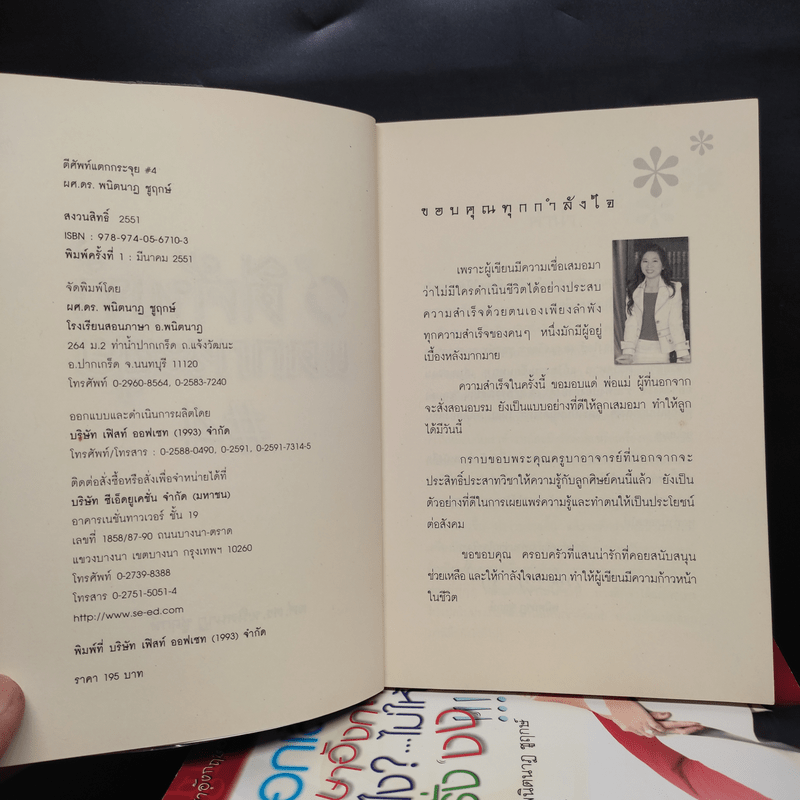 ตีศัพท์แตกกระจุย #4
ผศ.ดร. พนิตนาฏ ชูฤกษ์
สงวนสิทธิ์ 2551
ISBN : 978-974-05-6710-3
พิมพ์ครั้งที่ 1 : มีนาคม 2551
จัดพิมพ์โดย
ผศ.ดร. พนิตนาฏ ชูฤกษ์
โรงเรียนสอนภาษา อ.พนิตนาฏ
264 ม.2 ท่าน้ำปากเกร็ด ถ.แจ้งวัฒนะ
อ.ปากเกร็ด จ.นนทบุรี 11120
โทรศัพท์ 0-2960-8564, 0-2583-7240
ออกแบบและดำเนินการผลิตโดย
บริษัท เฟิสท์ ออฟเซท (1993) จำกัด
โทรศัพท์/โทรสาร : 0-2588-0490, 0-2591, 0-2591-7314-5
ติดต่อสั่งซื้อหรือสั่งเพื่อจำหน่ายได้ที่
บริษัท ซีเอ็ดยูเคชั่น จำกัด (มหาชน)
อาคารเนชั่นทาวเวอร์ ชั้น 19
เลขที่ 1858/87-90 ถนนบางนา-ตราด
แขวงบางนา เขตบางนา กรุงเทพฯ 10260
โทรศัพท์ 0-2739-8388
โทรสาร 0-2751-5051-4
http://www.se-ed.com
พิมพ์ที่ บริษัท เฟิสท์ ออฟเซท (1993) จำกัด
ราคา 195 บาท
ขอบคุณทุกกำลังใจ
เพราะผู้เขียนมีความเชื่อเสมอมา
ว่าไม่มีใครดำเนินชีวิตได้อย่างประสบ
ความสำเร็จด้วยตนเองเพียงลำพัง
ทุกความสำเร็จของคนๆ หนึ่งมักมีผู้อยู่
เบื้องหลังมากมาย
ความสำเร็จในครั้งนี้ ขอมอบแด่ พ่อแม่ ผู้ที่นอกจาก
จะสั่งสอนอบรม ยังเป็นแบบอย่างที่ดีให้ลูกเสมอมา ทำให้ลูก
ได้มีวันนี้
กราบขอบพระคุณครูบาอาจารย์ที่นอกจากจะ
ประสิทธิ์ประสาทวิชาให้ความรู้กับลูกศิษย์คนนี้แล้ว ยังเป็น
ตัวอย่างที่ดีในการเผยแพร่ความรู้และทำตนให้เป็นประโยชน์
ต่อสังคม
ขอขอบคุณ ครอบครัวที่แสนน่ารักที่คอยสนับสนุน
ช่วยเหลือ และให้กำลังใจเสมอมา ทำให้ผู้เขียนมีความก้าวหน้า
ในชีวิต